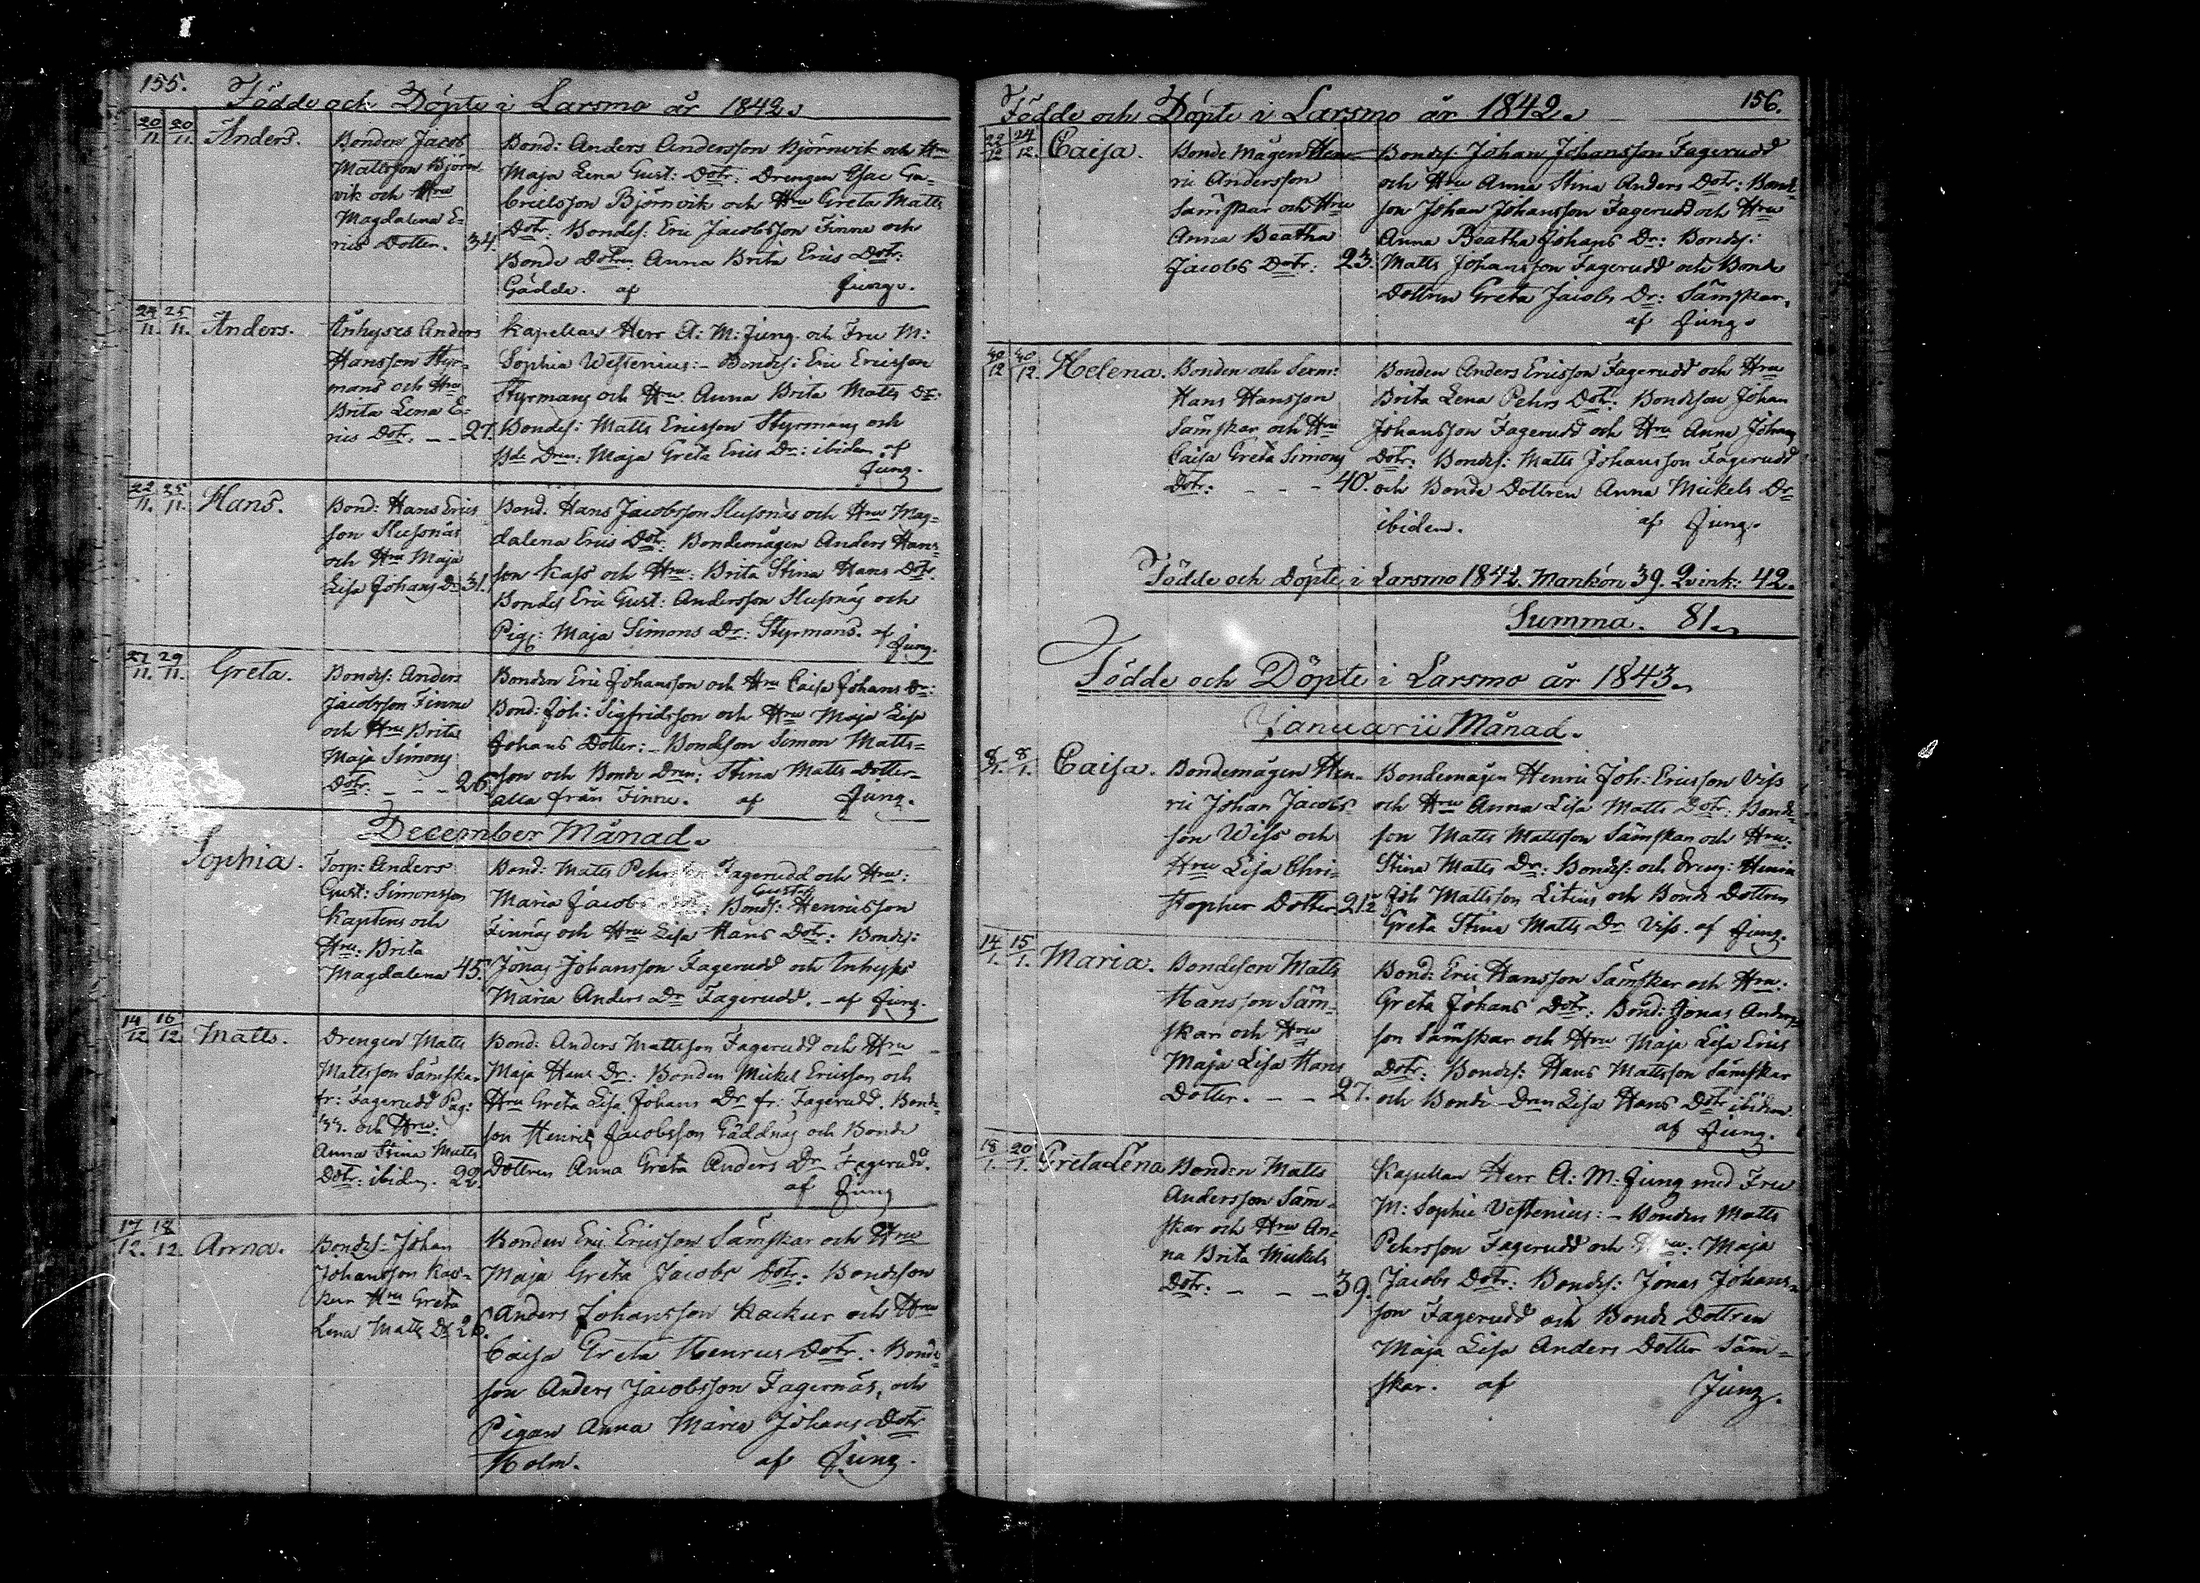 155. Födde och Döpte i Larsmo år 1842.
20/11. 20/11. Anders.
Bonden Jacob
Mattsson Björn-
vik och Hru
Magdalena E-
rics Dotter. 34.
Bond: Anders Andersson Björnvik och Hru
Maja Lena Gust: Dotr: Drengen Esac Ga-
brielsson Björnvik och Hru Greta Matts
Dotr: Bondes: Eric Jacobsson Finne och
Bonde Dotren Anna Brita Erics Dotr:
Gädda. af Jung.
25/11. Anders.
Inhyses Anders
Hansson Styr-
mans och Hru
Brita Lena E-
rics Dotr. - - 27.
Kapellan Herr A: M: Jung och Fru M:
Sophia Westenius:- Bondes: Eric Ericsson
Styrmans och Hru: Anna Brita Matts Dr:
Bondes: Matts Ericsson Styrmans och
Bde Dren: Maja Greta Erics Dr: ibidem af
Jung.
22/11. 25/11. Hans.
Bond: Hans Erics-
son Slussnäs
och Hru Maja
Lisa Johans Dr 31.
Bond: Hans Jacobsson Slussnäs och Hru Mag-
dalena Erics Dotr: Bondemågen Anders Hans-
son Kass och Hru: Brita Stina Hans Dotr.
Bondes Eric Gust: Andersson Slussnäs och
Pig: Maja Simons Dr: Styrmans. af
Jung.
27/11. 29/11. Greta.
Bondes: Anders
Jacobsson Finne
och Hru Brita
Maja Simons
Dotr: - - - 26.
Bonden Eric Johansson och Hru Caisa Johans Dr:
Bond: Joh: Sigfridsson och Hru Maja Lisa
Johans Dotter:- Bondeson Simon Matts-
son och Bonde Dren: Stina Matts Dotter-
alla från Finne. af Jung.
December Månad.
Sophia.
Torp: Anders
Gust: Simonsson
Kaptens och
Hru: Brita
Magdalena 45.
Bond: Matts Pehrsson Fagerudd och Hru:
Maria Jacobs Dotr: Bonds: Gustaf Henricsson
Finnäs och Hru Lisa Hans Dotr: Bondes:
Jonas Johansson Fagerudd och Inhyses
Maria Anders Dr Fagerudd. - af Jung.
14/12 16/12 Matts.
Drengen Matts
Mattsson Sämskar
fr: Fagerudd Pag:
och Hru:
Anna Stina Matts
Dotr: ibidem. 22.
Bond: Anders Mattsson Fagerudd och Hru
Maja Hans Dr: Bonden Mickel Ericsson och
Hru Greta Lisa Johans Dr fr: Fagerudd. Bonde-
son Henric Jacobsson Gäddnäs och Bonde
Dottren Anna Greta Anders Dr Fagerudd.
af Jung
17/12. 18/12. Anna.
Bondes: Johan
Johansson Kac-
kur Hru Greta
Lena Matts Dr 26.
Bonden Eric Ericsson Sämskar och Hru
Maja Greta Jacobs Dotr: Bondeson
Anders Johansson Kackur och Hru
Caisa Greta Henrics Dotr: Bonde-
son Anders Jacobsson Fagernäs, och
Pigan Anna Maria Johans Dotr
Holm. af Jung.
Födde och Döpte i Larsmo år 1842. 156.
22/12 24/12. Caisa.
Bonde Mågen Hen-
ric Andersson
Sämskar och Hru
Anna Beatha
Jacobs Dotr: 23.
Bondes: Johan Johansson Fagerudd
och Hru Anna Stina Anders Dotr: Bonde-
son Johan Johansson Fagerudd och Hru
Anna Beatha Johans Dr: Bondes:
Matts Johansson Fagerudd och Bonde
Dottren Greta Jacobs Dr: Sämskar.
af Jung.
30/12 30/12. Helena.
Bonden och Sexm:
Hans Hansson
Sämskar och Hru
Caisa Greta Simons
Dotr: - - - 40.
Bonden Anders Ericsson Fagerudd och Hru
Brita Lena Pehrs Dotr: Bondeson Johan
Johansson Fagerudd och Hru Anna Johans
Dotr: Bondes: Matts Johansson Fagerudd
och Bonde Dottren Anna Mickels Dr
ibidem. af Jung.
Födde och Döpte i Larsmo 1842. Mankön 39. Qvink: 42.
Summa. 81.
Födde och Döpte i Larsmo år 1843.
Januarii Månad.
8/1. 8/1. Caisa.
Bondemågen Hen-
ric Johan Jacobs-
son Wiss och
Hru Lisa Chri-
stopher Dotter 21½
Bondemågen Henric Joh: Ericsson Viss
och Hru Anna Lisa Matts Dotr: Bonde-
son Matts Mattsson Sämskar och Hru:
Stina Matts Dr: Bondes: och Dreng: Henric
Joh Mattsson Litius och Bonde Dottren
Greta Stina Matts Dr Viss. af Jung.
14/1. 15/1. Maria.
Bondeson Matts
Hansson Säm-
skar och Hru
Maja Lisa Hans
Dotter. - - 27.
Bond: Eric Hansson Sämskar och Hru:
Greta Johans Dotr: Bond: Jonas Anders-
son Sämskar och Hru Maja Lisa Erics
Dotr: Bondes: Hans Mattsson Sämskar
och Bonde Dren Lisa Hans Dotr ibidem
af Jung.
18/1. 20/1. Greta Lena
Bonden Matts
Andersson Säm-
skar och Hru An-
na Brita Mickels
Dotr: - - - 39.
Kapellan Herr A: M: Jung med Fru
M: Sophie Vestenius:- Bonden Matts
Pehrsson Fagerudd och Hru: Maja
Jacobs Dotr: Bondes: Jonas Johans-
son Fagerudd och Bonde Dottren
Maja Lisa Anders Dotter Säm-
skar. af Jung.